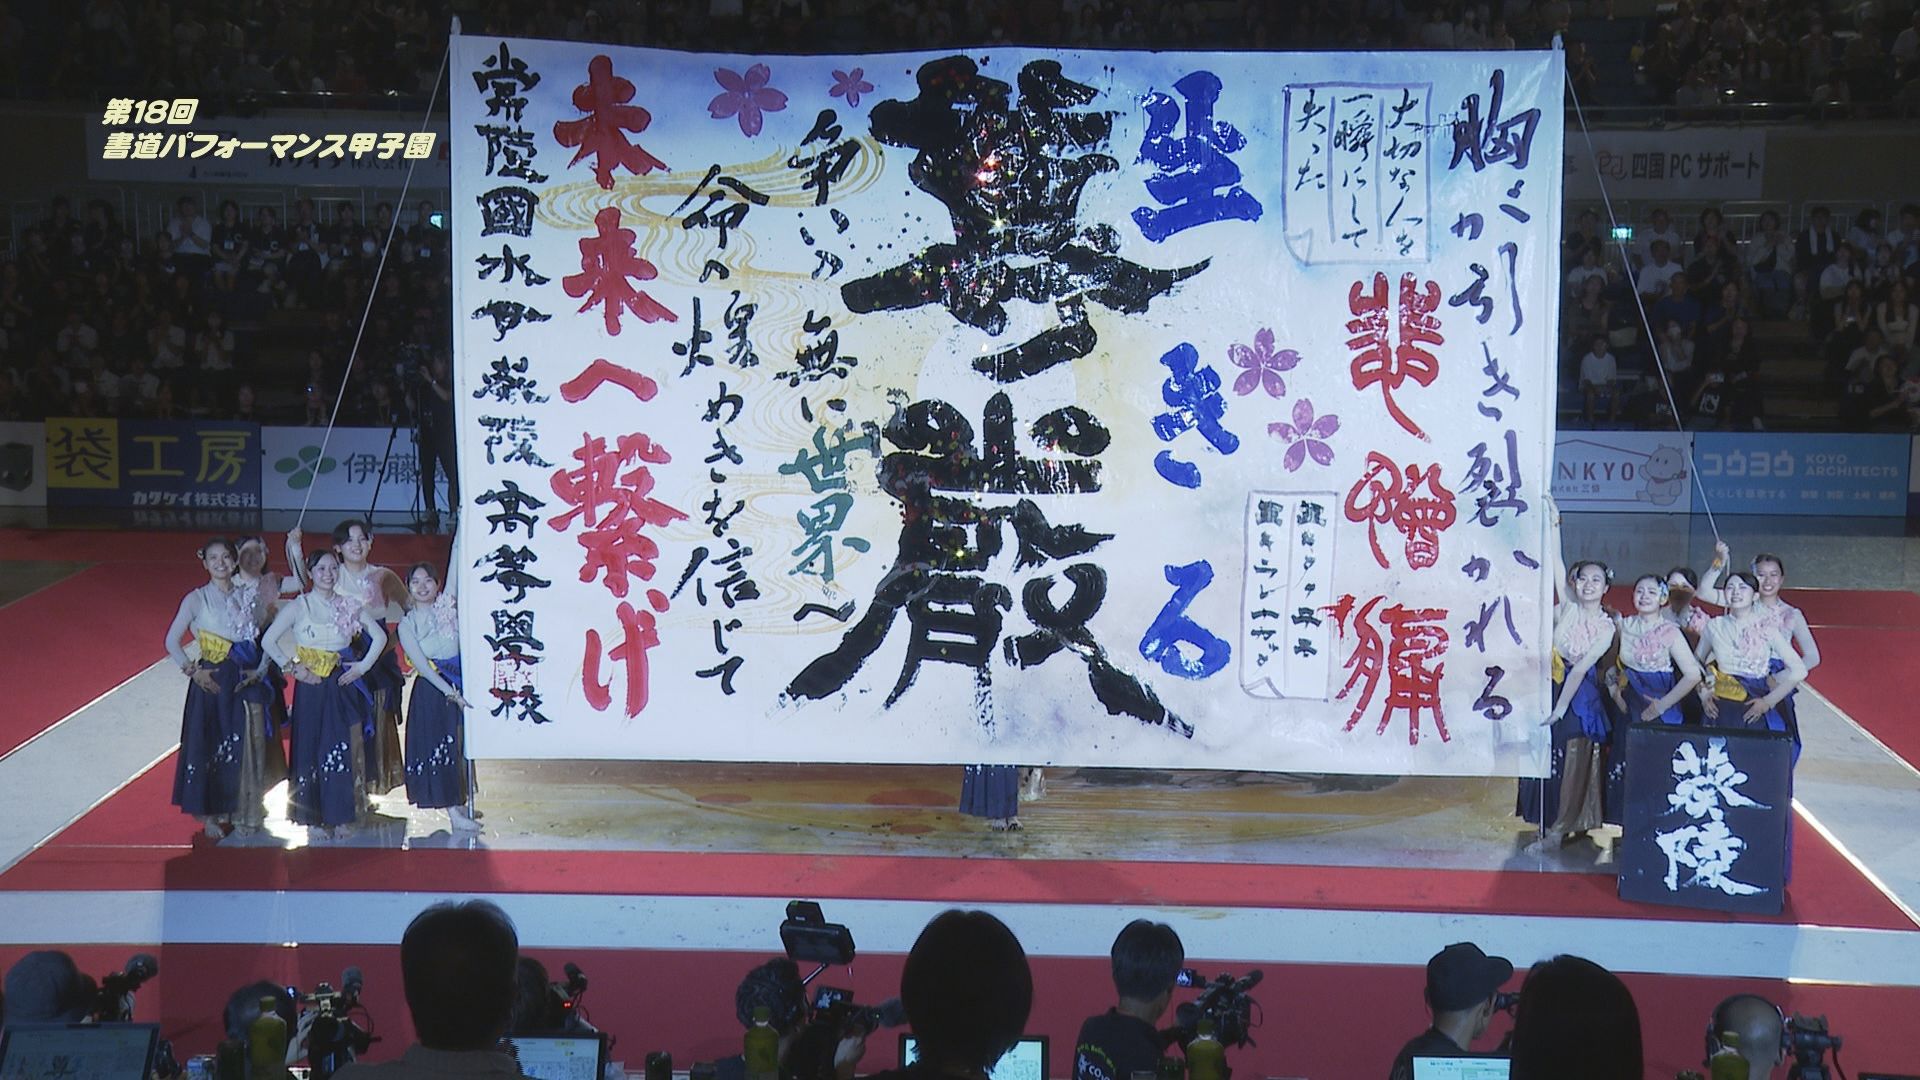 第18回
書道パフォーマンス甲子園
胸が引き裂かれる
大切な人を
一瞬にして
失った
悲憎痛
生きる
尊厳
争いの無い世界へ
命の煌めきを信じて
未来へ繋げ
常陸國水戸葵陵高等學校
葵陵
四国PCサポート
袋工房
カクケイ株式会社
伊藤
NKYO
株式会社 三協
コウヨウ
KOYO
ARCHITECTS